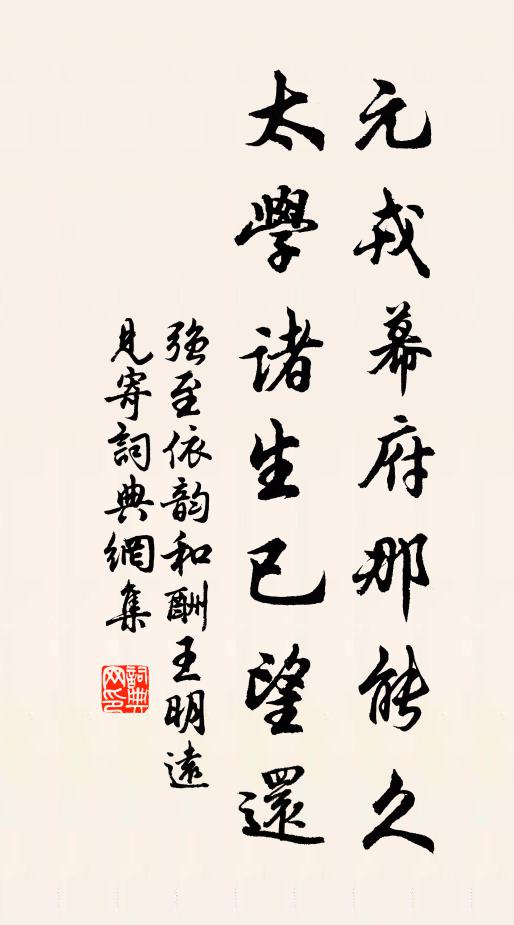 元戎幕府那能久
太學诸生已望還
强至依韵和酬王明遠
見寄詞典網集
詞典網印